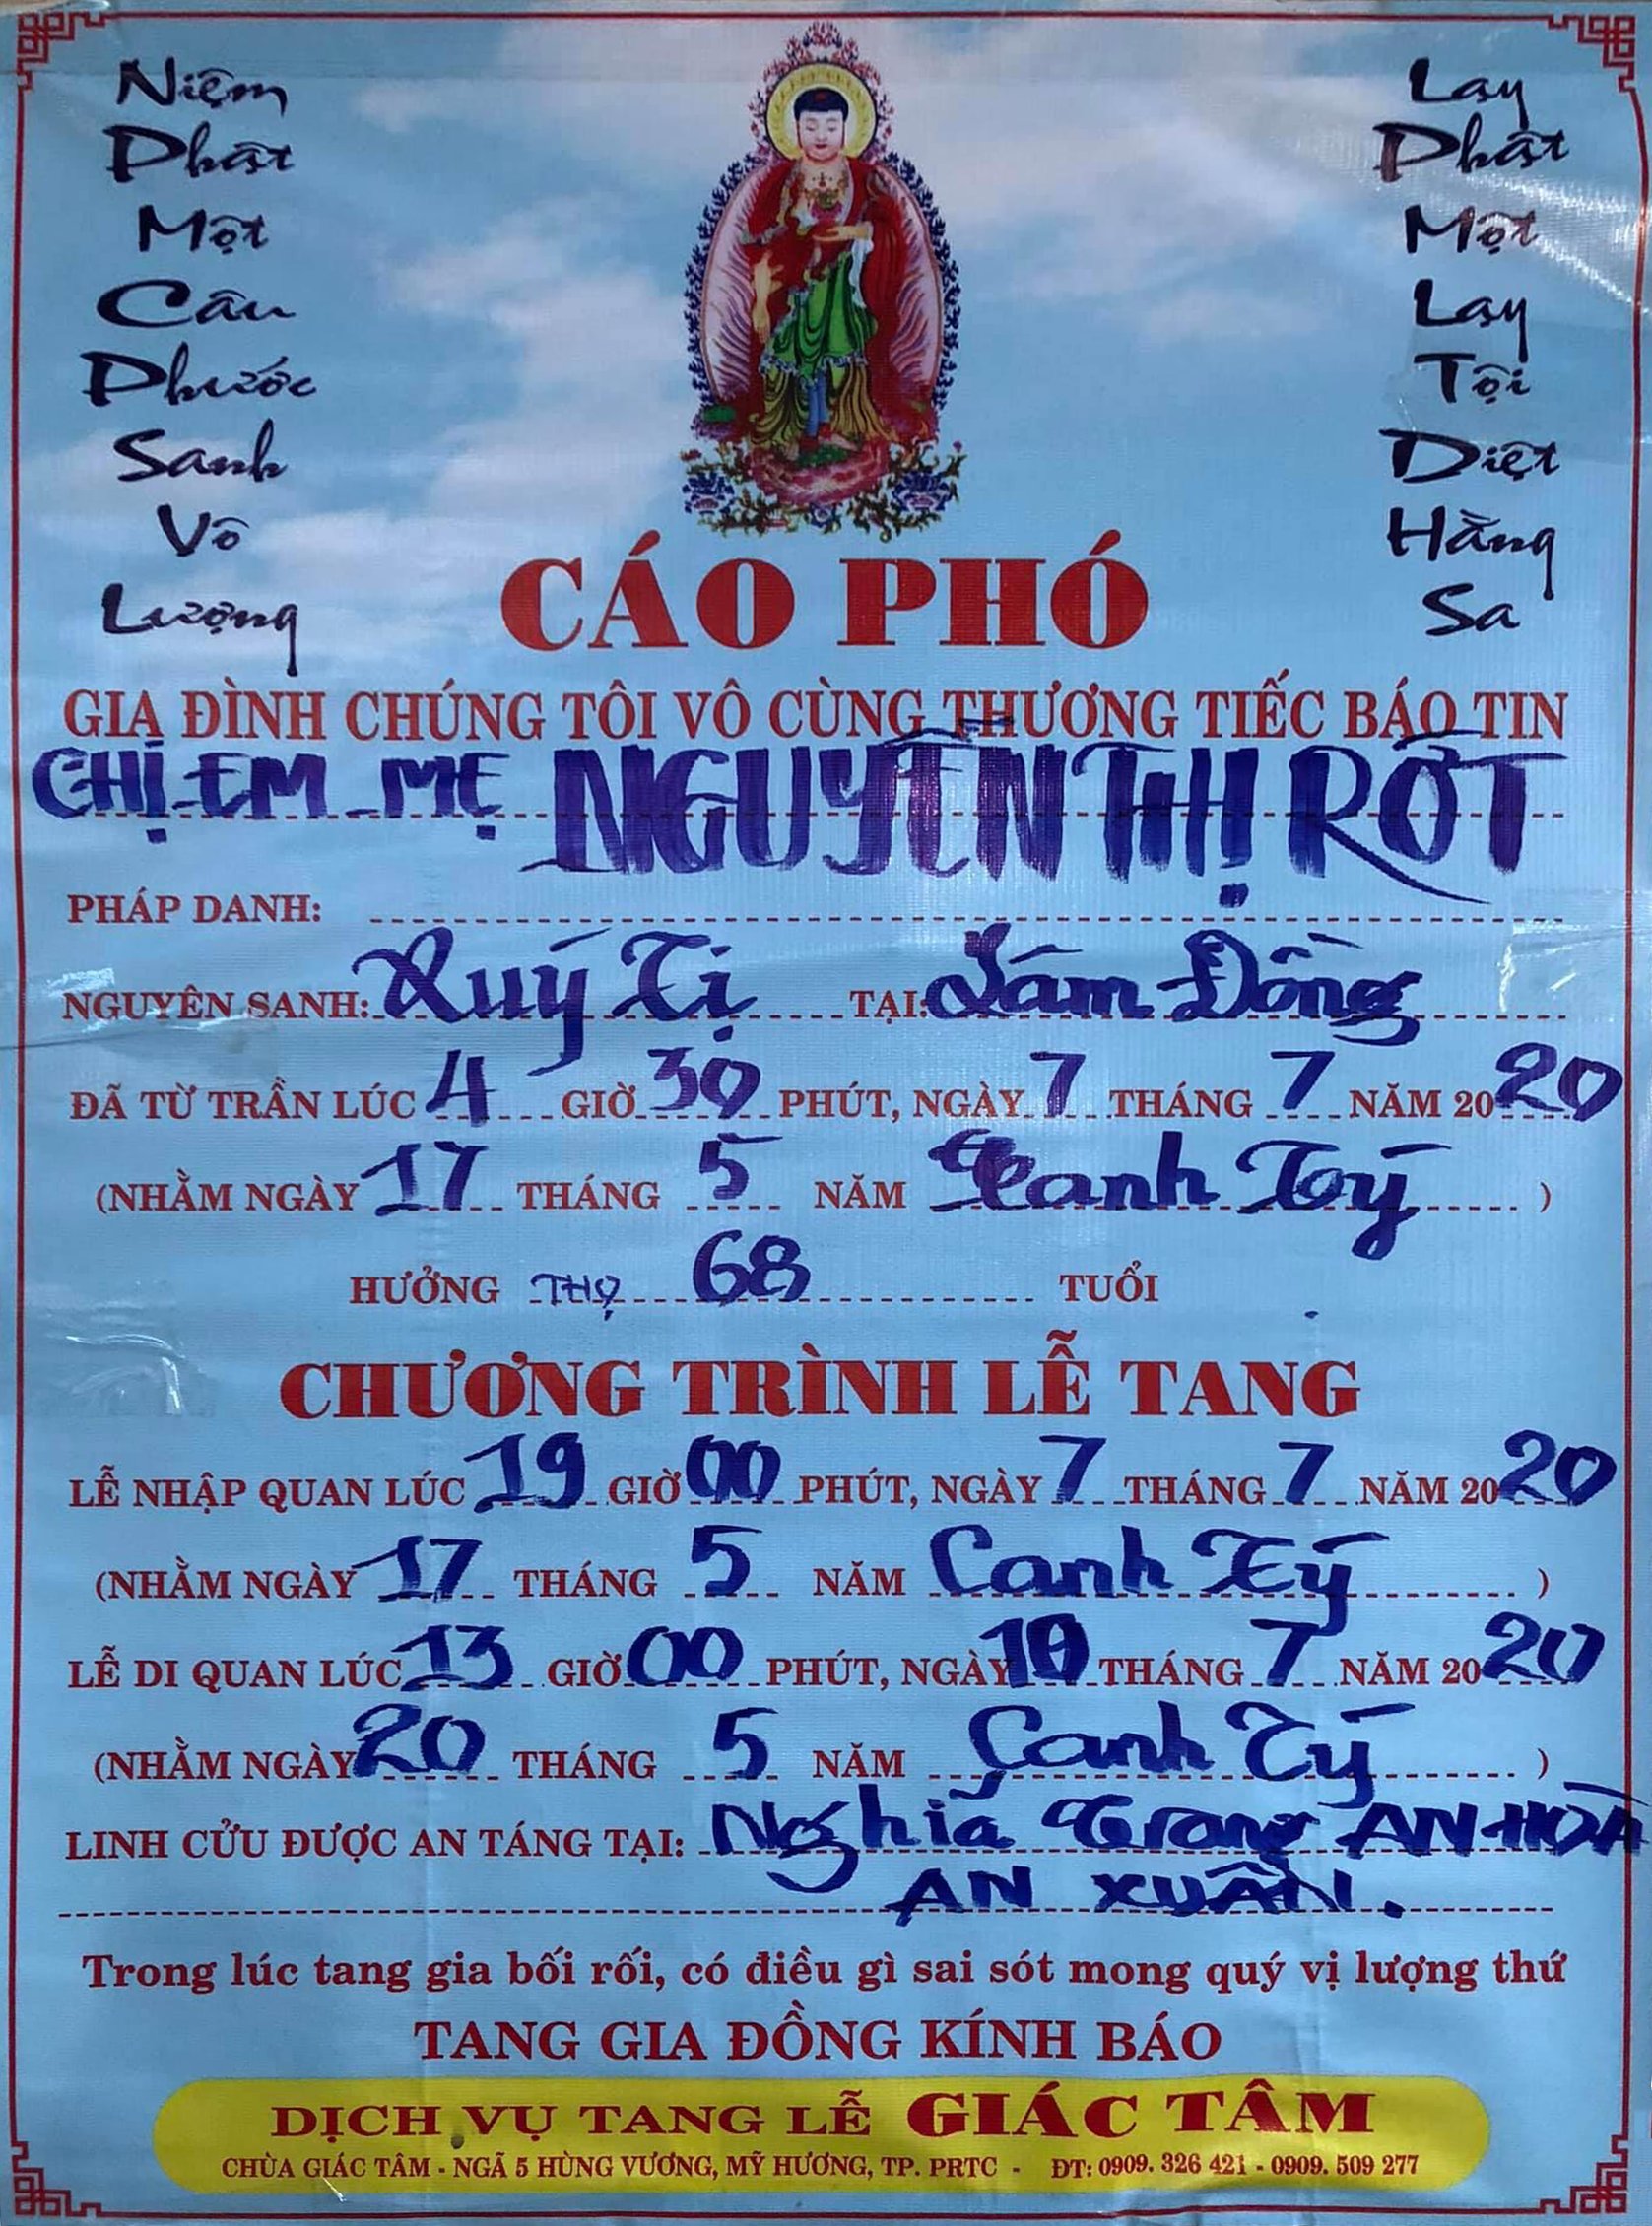 Niệm
Phật
Một
Câu
Phước
Sanh
Vô
Lượng
Lạy
Phật
Một
Lạy
Tội
Diệt
Hằng
Sa
CÁO PHÓ
GIA ĐÌNH CHÚNG TÔI VÔ CÙNG THƯƠNG TIẾC BÁO TIN
CHỊ EM MẸ NGUYỄN THỊ RỚT
PHÁP DANH:
NGUYÊN SANH: Quý Tị TẠI: Lâm Đồng
ĐÃ TỪ TRẦN LÚC 4 GIỜ 30 PHÚT, NGÀY 7 THÁNG 7 NĂM 2020
(NHẰM NGÀY 17 THÁNG 5 NĂM Canh Tý)
HƯỞNG THỌ 68 TUỔI
CHƯƠNG TRÌNH LỄ TANG
LỄ NHẬP QUAN LÚC 19 GIỜ 00 PHÚT, NGÀY 7 THÁNG 7 NĂM 2020
(NHẰM NGÀY 17 THÁNG 5 NĂM Canh Tý)
LỄ DI QUAN LÚC 13 GIỜ 00 PHÚT, NGÀY 10 THÁNG 7 NĂM 2020
(NHẰM NGÀY 20 THÁNG 5 NĂM Canh Tý)
LINH CỬU ĐƯỢC AN TÁNG TẠI: Nghĩa Trang AN HOÀ
AN XUÂN.
Trong lúc tang gia bối rối, có điều gì sai sót mong quý vị lượng thứ
TANG GIA ĐỒNG KÍNH BÁO
DỊCH VỤ TANG LỄ GIÁC TÂM
CHÙA GIÁC TÂM - NGÃ 5 HÙNG VƯƠNG, MỸ HƯƠNG, TP. PRTC - ĐT: 0909. 326 421 - 0909. 509 277